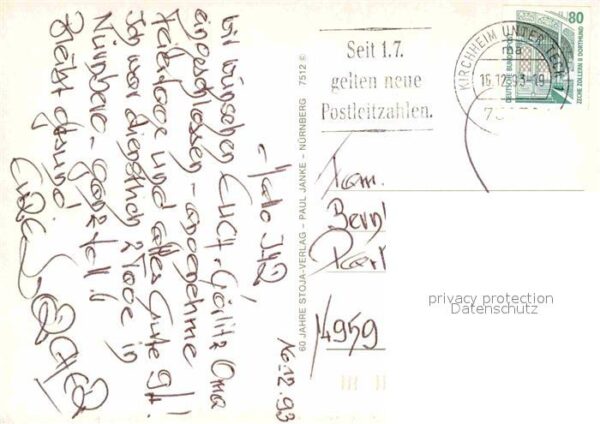 16.12.93
Hallo Ihr 2,
wir wünschen EUCH + Görlitz Oma
eingeschlossen - angenehme
Feiertage und alles Gute 94!
Ich war dienstlich 2 Tage in
Nürnberg - ganz toll!
Bleibt gesund
60 JAHRE STOJA-VERLAG - PAUL JANKE - NÜRNBERG 7512
Seit 1.7.
gelten neue
Postleitzahlen.
KIRCHHEIM UNTER TECK
ma
16.12.93-19
73
80
DEUTSCHE BUNDESPOST
ZECHE ZOLLERN II DORTMUND
Fam.
Bernd
14959
privacy protection
Datenschutz